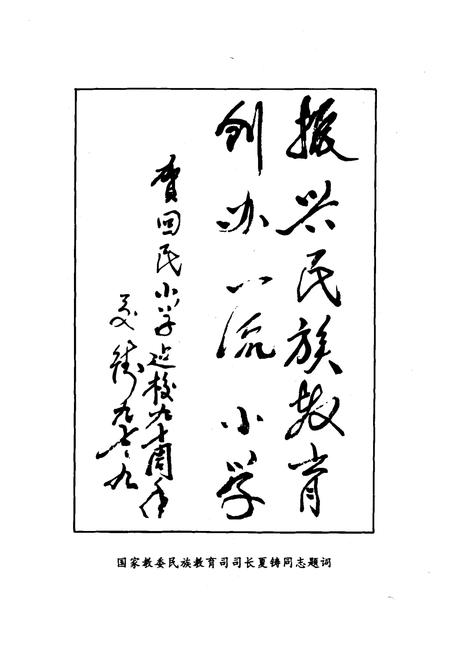 振兴民族教育
创办一流小学
贺回民小学建校九十周年
夏铸 九七、九
国家教委民族教育司司长夏铸同志题词